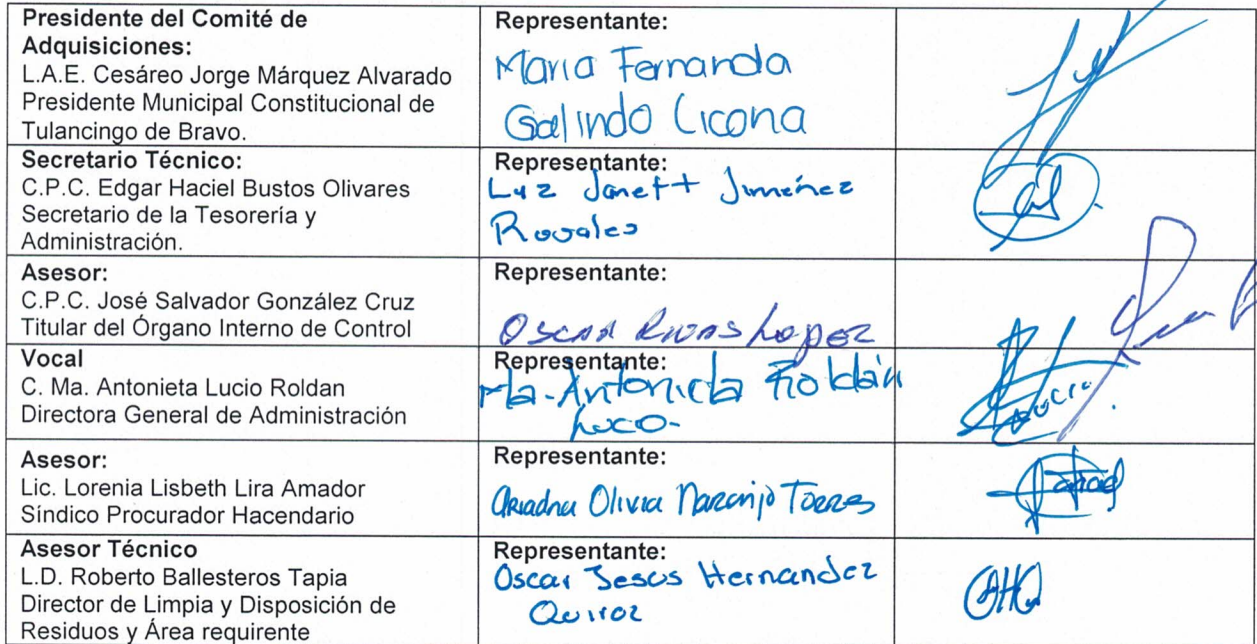 Presidente del Comité de
Adquisiciones:
L.A.E. Cesáreo Jorge Márquez Alvarado
Presidente Municipal Constitucional de
Tulancingo de Bravo.
Representante:
Maria Fernanda
Galindo Licona
Secretario Técnico:
C.P.C. Edgar Haciel Bustos Olivares
Secretario de la Tesorería y
Administración.
Representante:
Luz Janett Jiménez
Rosales
Asesor:
C.P.C. José Salvador González Cruz
Titular del Órgano Interno de Control
Representante:
Oscar Rivas Lopez
Vocal
C. Ma. Antonieta Lucio Roldan
Directora General de Administración
Representante:
Ma. Antonieta Roldán
Asesor:
Lic. Lorenia Lisbeth Lira Amador
Síndico Procurador Hacendario
Representante:
Ariadna Olivia Naranjo Torres
Asesor Técnico
L.D. Roberto Ballesteros Tapia
Director de Limpia y Disposición de
Residuos y Área requirente
Representante:
Oscar Jesus Hernandez
Quiroz